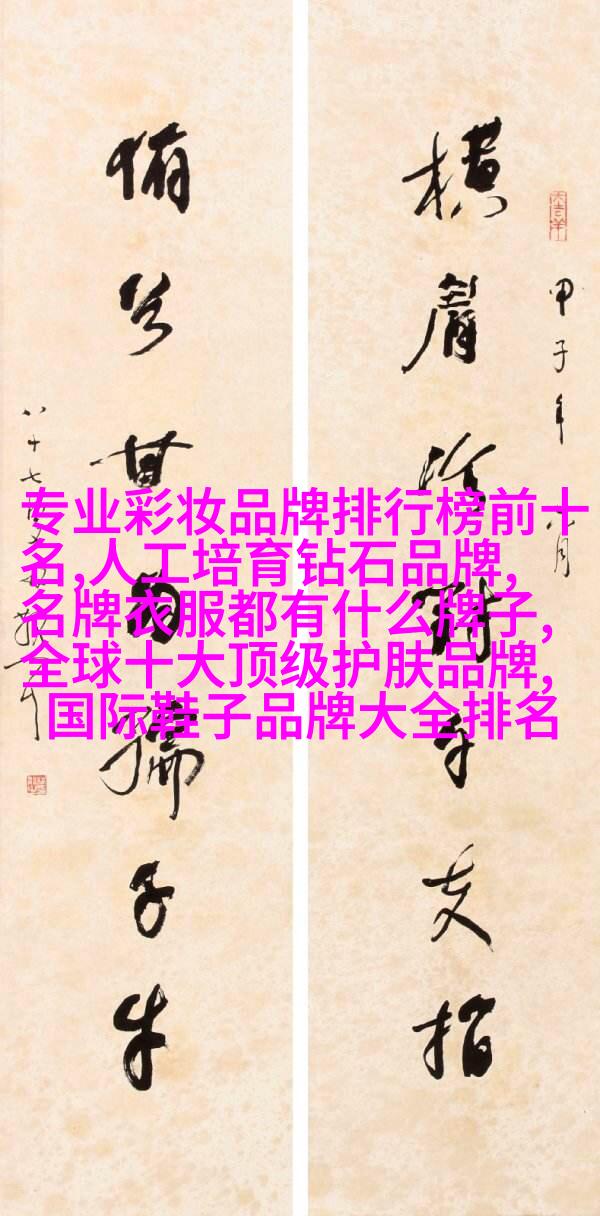 横眉冷對千夫指
甲子年
俯首甘為孺子牛
八十七
专业彩妆品牌排行榜前十
名,人工培育钻石品牌,
名牌衣服都有什么牌子,
全球十大顶级护肤品牌,
国际鞋子品牌大全排名